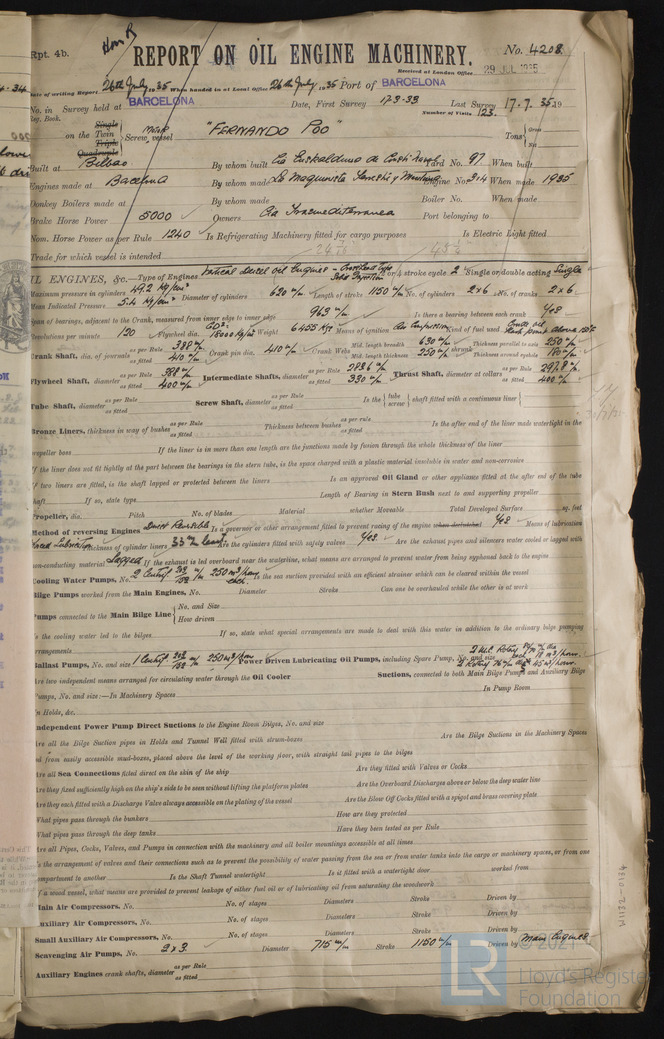 Rpt. 4b.
REPORT ON OIL ENGINE MACHINERY.
No. 4208
Received at London Office 29 JUL 1935
Date of writing Report 26th July 1935 When handed in at Local Office 26th July 1935 Port of BARCELONA
No. in Reg. Book. Survey held at BARCELONA Date, First Survey 17-3-33 Last Survey 17.7.35 19
Number of Visits 123
on the Single Twin Triple Quadruple Screw vessel "FERNANDO POO" Tons Gross Net
Built at Bilbao By whom built Yard No. 97 When built
Engines made at Barcelona By whom made Engine No. 3+4 When made 1935
Donkey Boilers made at By whom made Boiler No. When made
Brake Horse Power 5000 Owners Cia Trasmediterranea Port belonging to
Nom. Horse Power as per Rule 1240 Is Refrigerating Machinery fitted for cargo purposes Is Electric Light fitted
Trade for which vessel is intended
OIL ENGINES, &c.—Type of Engines 2 or 4 stroke cycle 2 Single or double acting Single
Maximum pressure in cylinders 49.2 kg/cm² Diameter of cylinders 620 m/m Length of stroke 1150 m/m No. of cylinders 2x6 No. of cranks 2x6
Mean Indicated Pressure 5.4 kg/cm²
Span of bearings, adjacent to the Crank, measured from inner edge to inner edge 963 m/m Is there a bearing between each crank Yes
Revolutions per minute 120 Flywheel dia. Weight 6455 Kgs Means of ignition Air Compression Kind of fuel used
Crank Shaft, dia. of journals as per Rule 388 m/m as fitted 410 m/m Crank pin dia. 410 m/m Crank Webs Mid. length breadth 630 m/m Mid. length thickness 250 m/m shrunk Thickness parallel to axis 250 m/m Thickness around eyehole 180 m/m
Flywheel Shaft, diameter as per Rule 388 m/m as fitted 400 m/m Intermediate Shafts, diameter as per Rule 283.6 m/m as fitted 330 m/m Thrust Shaft, diameter at collars as per Rule 297.8 m/m as fitted 400 m/m
Tube Shaft, diameter as per Rule as fitted Screw Shaft, diameter as per Rule as fitted Is the tube screw shaft fitted with a continuous liner
Bronze Liners, thickness in way of bushes as per Rule as fitted Thickness between bushes as per rule as fitted Is the after end of the liner made watertight in the
propeller boss If the liner is in more than one length are the junctions made by fusion through the whole thickness of the liner
If the liner does not fit tightly at the part between the bearings in the stern tube, is the space charged with a plastic material insoluble in water and non-corrosive
If two liners are fitted, is the shaft lapped or protected between the liners Is an approved Oil Gland or other appliance fitted at the after end of the tube
shaft If so, state type Length of Bearing in Stern Bush next to and supporting propeller
Propeller, dia. Pitch No. of blades Material whether Moveable Total Developed Surface sq. feet
Method of reversing Engines Direct Reversible Is a governor or other arrangement fitted to prevent racing of the engine when declutched Yes Means of lubrication
Forced Lubrication Thickness of cylinder liners 33 m/m least Are the cylinders fitted with safety valves Yes Are the exhaust pipes and silencers water cooled or lagged with
non-conducting material Lagged If the exhaust is led overboard near the waterline, what means are arranged to prevent water from being syphoned back to the engine
Cooling Water Pumps, No. 2 Centrif. 250 m³/hour each. Is the sea suction provided with an efficient strainer which can be cleared within the vessel
Bilge Pumps worked from the Main Engines, No. Diameter Stroke Can one be overhauled while the other is at work
Pumps connected to the Main Bilge Line No. and Size How driven
Is the cooling water led to the bilges If so, state what special arrangements are made to deal with this water in addition to the ordinary bilge pumping
arrangements
Ballast Pumps, No. and size 1 Centrif. 250 m³/hour Power Driven Lubricating Oil Pumps, including Spare Pump, No. and size
Are two independent means arranged for circulating water through the Oil Cooler Suctions, connected to both Main Bilge Pumps and Auxiliary Bilge
Pumps, No. and size:—In Machinery Spaces In Pump Room
In Holds, &c.
Independent Power Pump Direct Suctions to the Engine Room Bilges, No. and size
Are all the Bilge Suction pipes in Holds and Tunnel Well fitted with strum-boxes Are the Bilge Suctions in the Machinery Spaces
led from easily accessible mud-boxes, placed above the level of the working floor, with straight tail pipes to the bilges
Are all Sea Connections fitted direct on the skin of the ship Are they fitted with Valves or Cocks
Are they fixed sufficiently high on the ship's side to be seen without lifting the platform plates Are the Overboard Discharges above or below the deep water line
Are they each fitted with a Discharge Valve always accessible on the plating of the vessel Are the Blow Off Cocks fitted with a spigot and brass covering plate
What pipes pass through the bunkers How are they protected
What pipes pass through the deep tanks Have they been tested as per Rule
Are all Pipes, Cocks, Valves, and Pumps in connection with the machinery and all boiler mountings accessible at all times
Is the arrangement of valves and their connections such as to prevent the possibility of water passing from the sea or from water tanks into the cargo or machinery spaces, or from one
compartment to another Is the Shaft Tunnel watertight Is it fitted with a watertight door worked from
If a wood vessel, what means are provided to prevent leakage of either fuel oil or lubricating oil from saturating the woodwork
Main Air Compressors, No. No. of stages Diameters Stroke Driven by
Auxiliary Air Compressors, No. No. of stages Diameters Stroke Driven by
Small Auxiliary Air Compressors, No. No. of stages Diameters Stroke Driven by
Scavenging Air Pumps, No. 2x3 Diameter 715 m/m Stroke 1150 m/m Driven by Main Engines
Auxiliary Engines crank shafts, diameter as per Rule as fitted
© 2021
LR
Lloyd's Register
Foundation